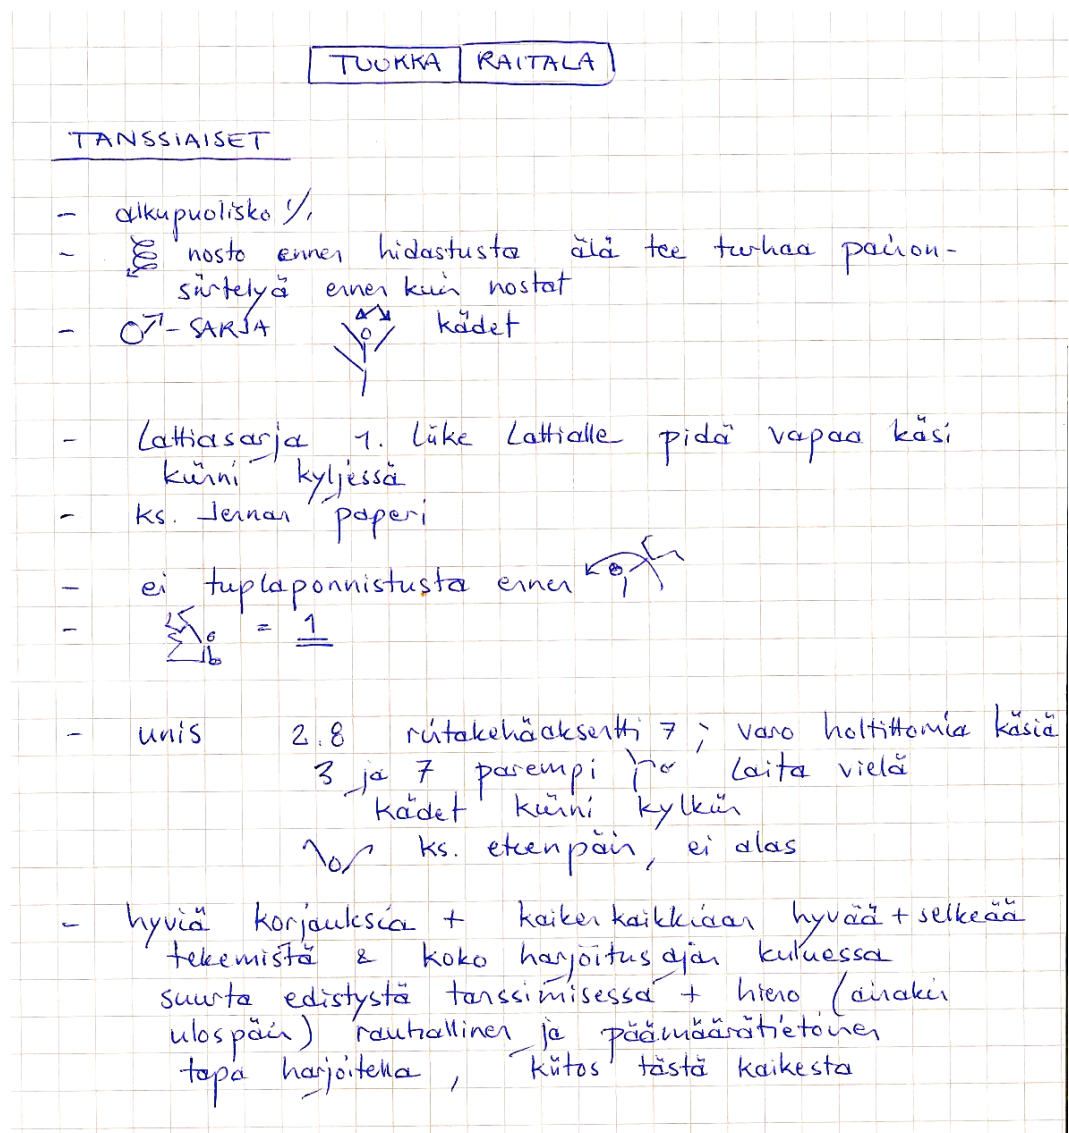 TUOKKA RAITALA
TANSSIAISET
- alkupuolisko
- nosto ennen hidastusta älä tee turhaa painon-
siirtelyä ennen kuin nostat
- ♂-SARJA kädet
- Lattiasarja 1. liike Lattialle pidä vapaa käsi
kiinni kyljessä
- ks. Jennan paperi
- ei tuplaponnistusta ennen
- = 1
- unis 2.8 rintakehäaksentti 7 ; varo holtittomia käsiä
3 ja 7 parempi Laita vielä
kädet kiinni kylkiin
ks. eteenpäin, ei alas
- hyviä korjauksia + kaiken kaikkiaan hyvää + selkeää
tekemistä & koko harjoitusajan kuluessa
suurta edistystä tanssimisessa + hieno (ainakin
ulospäin) rauhallinen ja päämäärätietoinen
tapa harjoitella, kiitos tästä kaikesta